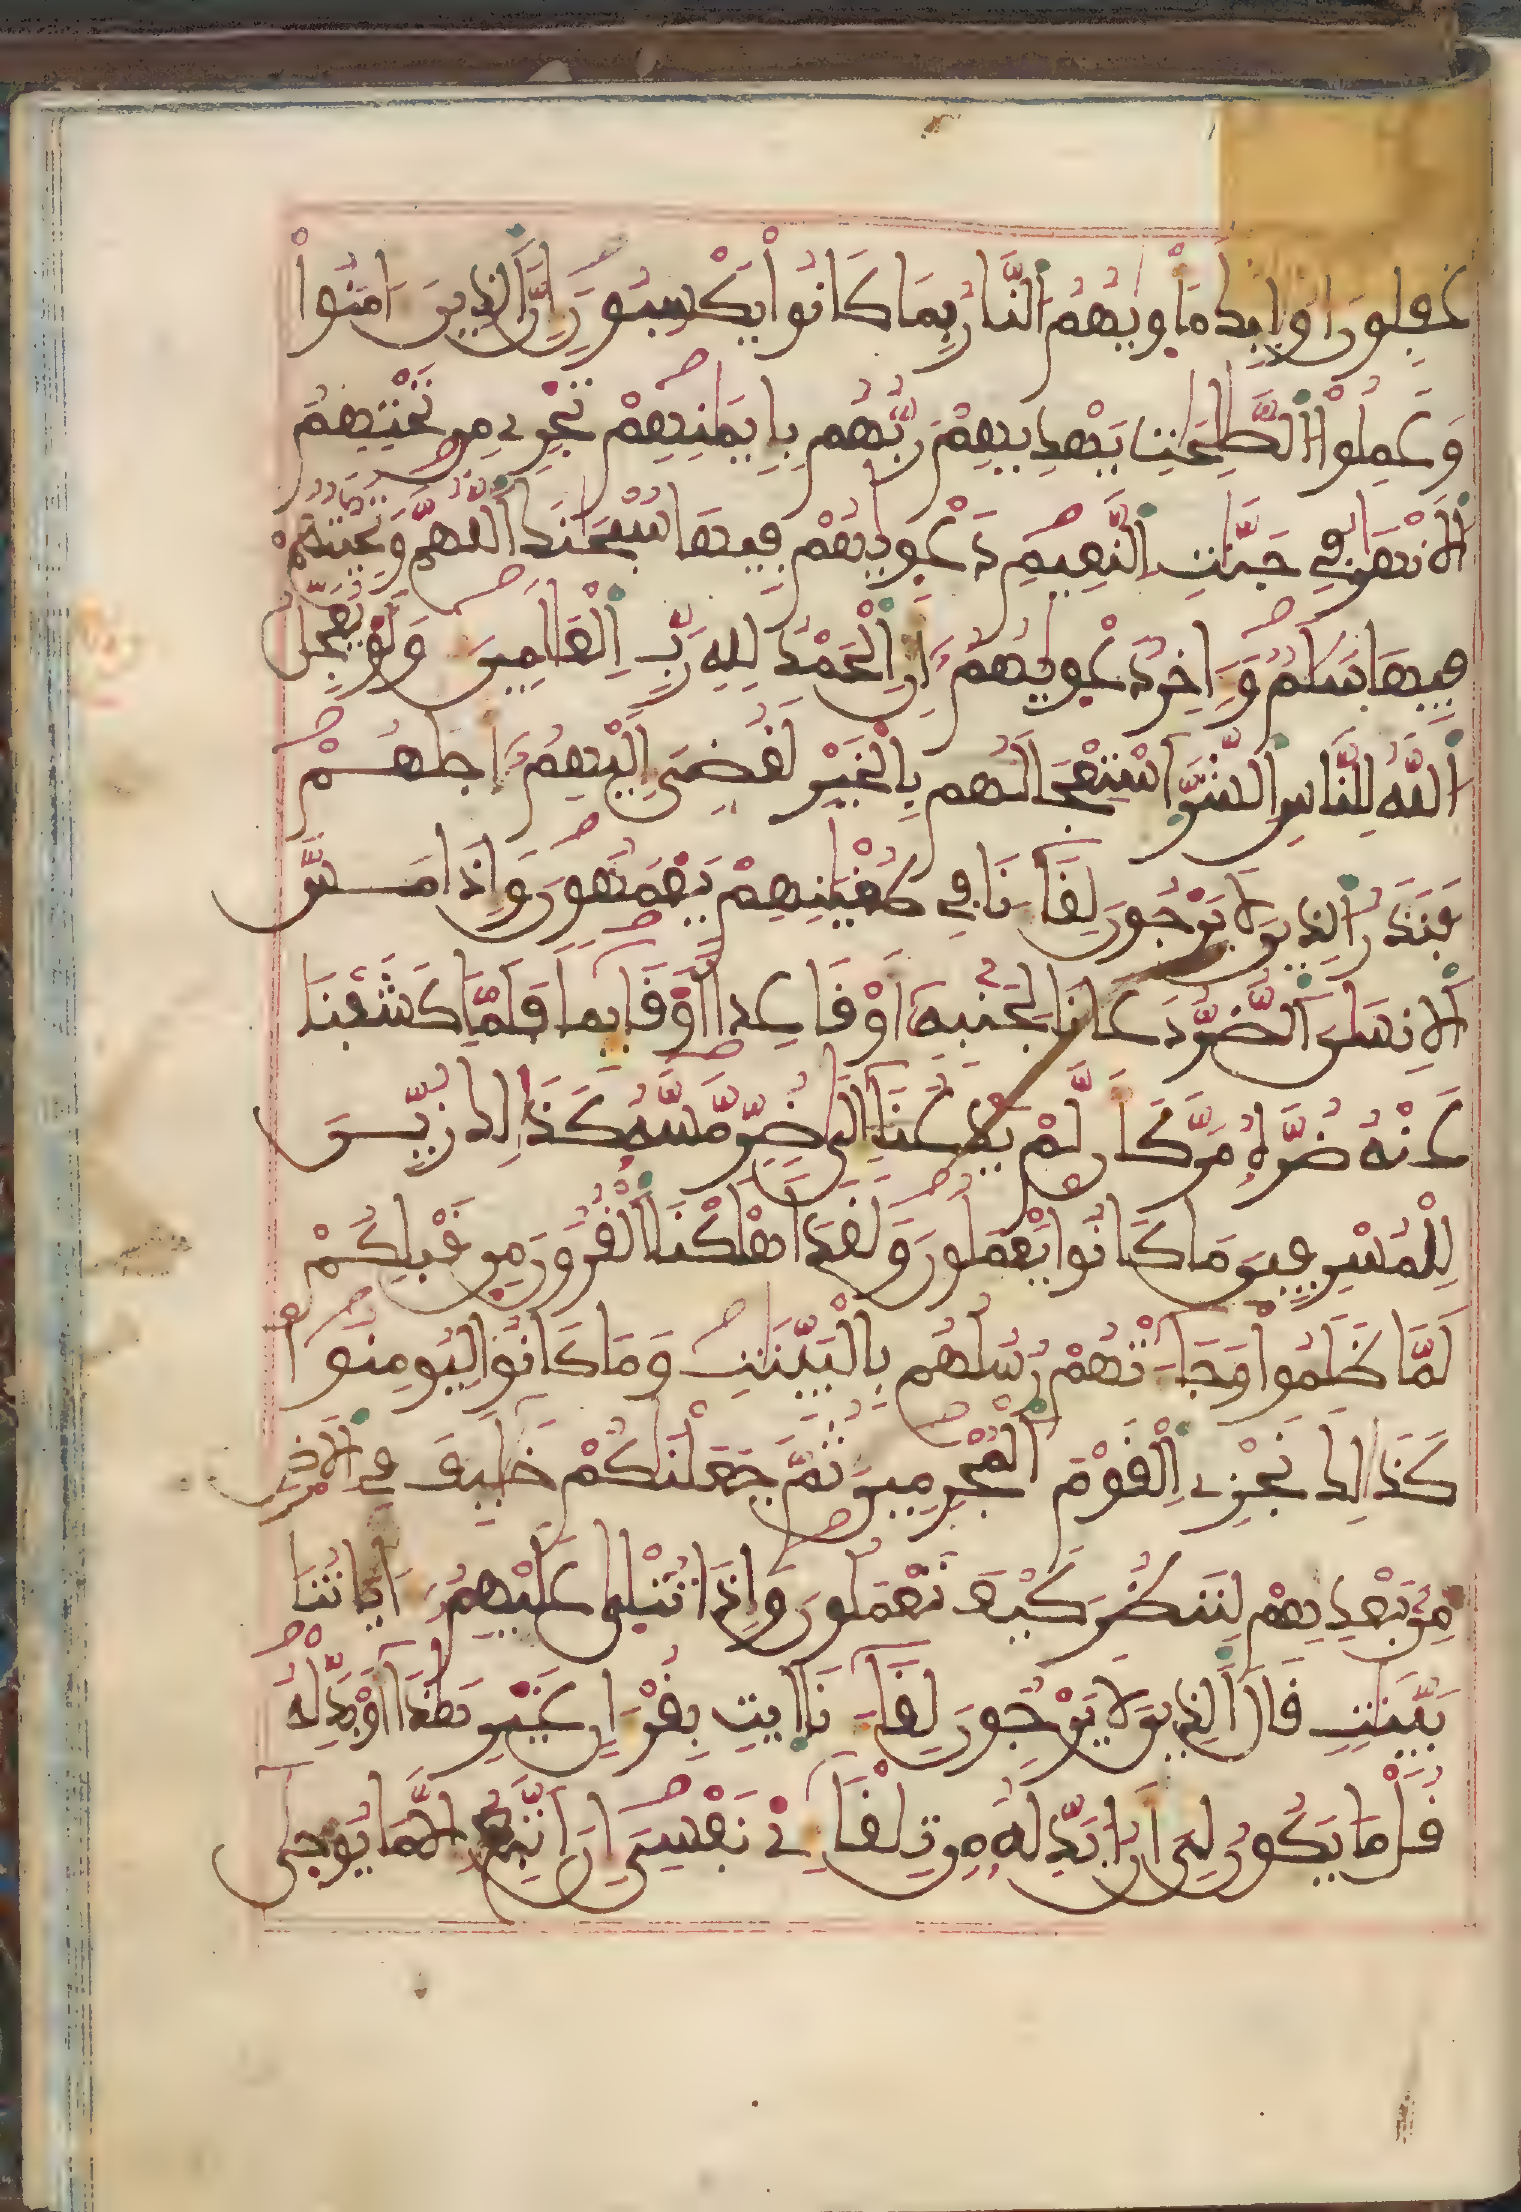 غٰفلون أولٰٓئك مأويٰهم النار بما كانوا يكسبون إن الذين ءامنوا
وعملوا الصٰلحٰت يهديهم ربهم بإيمٰنهم تجري من تحتهم
الانهٰر في جنٰت النعيم دعويٰهم فيها سبحٰنك اللهم وتحيتهم
فيها سلٰم وءاخر دعويٰهم أن الحمد لله رب العٰلمين ولو يعجل
الله للناس الشر استعجالهم بالخير لقضي إليهم أجلهم
فنذر الذين لا يرجون لقآءنا في طغيٰنهم يعمهون وإذا مس
الانسٰن الضر دعانا لجنبه أو قاعدا أو قآئما فلما كشفنا
عنه ضره مر كأن لم يدعنآ إلى ضر مسه كذٰلك زين
للمسرفين ما كانوا يعملون ولقد أهلكنا القرون من قبلكم
لما ظلموا وجآءتهم رسلهم بالبينٰت وما كانوا ليومنوا
كذٰلك نجزي القوم المجرمين ثم جعلنٰكم خلٰٓئف في الارض
من بعدهم لننظر كيف تعملون وإذا تتلى عليهم ءاياتنا
بينٰت قال الذين لا يرجون لقآءنا ايت بقرءان غير هٰذآ أو بدله
قل ما يكون لي أن أبدله من تلقآءي نفسي إن أتبع إلا ما يوحى